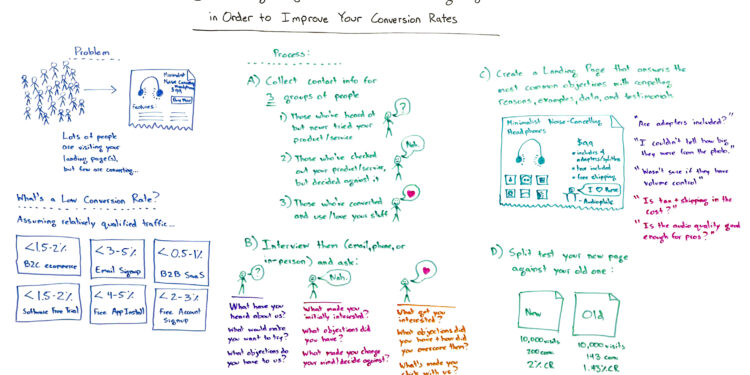 in Order to Improve Your Conversion Rates
Problem
Minimalist
Noise-Cancelling
Headphones
$99
Buy Now!
Features:
Lots of
people
are visiting
your
landing page(s),
but few are converting...
What's a Low Conversion Rate?
Assuming relatively qualified traffic...
<1.5-2%
B2C ecommerce
<3-5%
Email Signup
<0.5-1%
B2B SaaS
<1.5-2%
Software Free Trial
<4-5%
Free App Install
<2-3%
Free Account
Signup
Process:
A) Collect contact info for
3 groups of people
1) Those who've heard of
but never tried your
product/service
?
2) Those who've checked
out your product/service,
but decided against it
Nah.
3) Those who've converted
and use/love your stuff
B) Interview them (email, phone, or
in-person) and ask:
?
What have you
heard about us?
What would make
you want to try?
What objections do
you have to us?
Nah.
What made you
initially interested?
What objections did
you have?
What made you change
your mind/decide against?
What got you
interested?
What objections did
you have + how did
you overcome them?
What's made you
stick with us?
C) Create a Landing Page that answers the
most common objections with compelling
reasons, examples, data, and testimonials
Minimalist Noise-Cancelling
Headphones
$99
• includes 4
• tax included
• free shipping
-Audiophile
"Are adapters included?"
"I couldn't tell how big
they were from the photo."
"Wasn't sure if they have
volume control"
"Is tax + shipping in the
cost?"
"Is the audio quality good
enough for pros?"
D) Split test your new page
against your old one:
New
10,000 visits
200 conv
2% CR
Old
10,000 visits
143 conv
1.43% CR